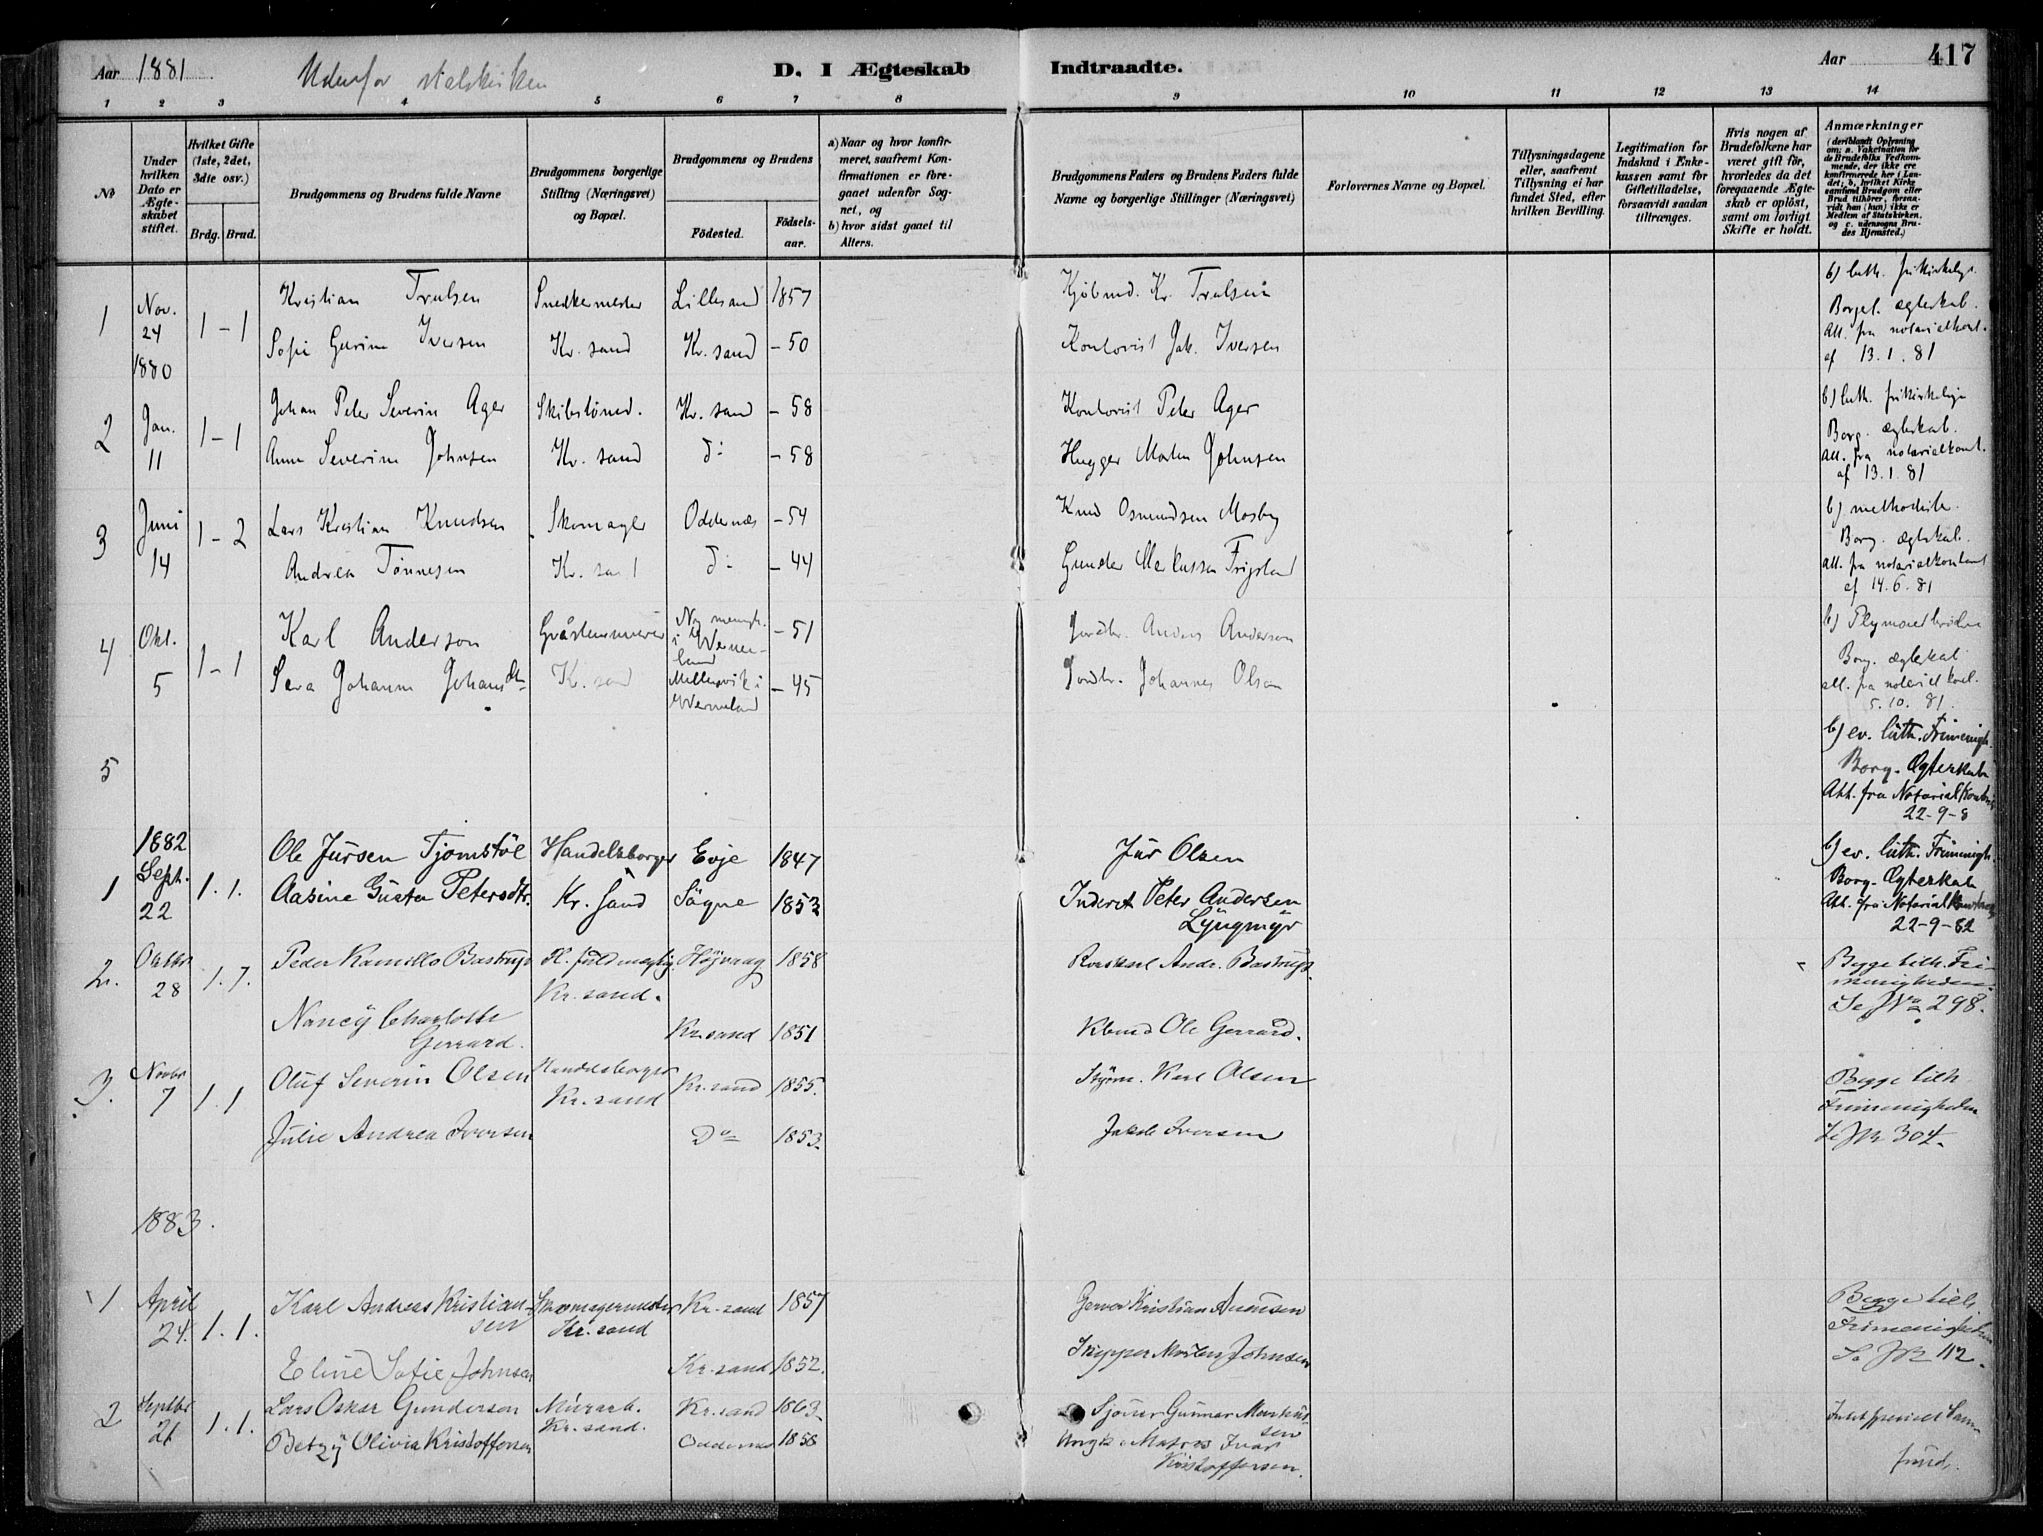 Aar 1881. Udenfor statskirken
D. I Ægteskab Indtraadte.
Aar 417
1 2 3 4 5 6 7 8 9 10 11 12 13 14
No
Under hvilken Dato er Ægteskabet stiftet.
Hvilket Gifte (1ste, 2det, 3die osv.)
Brdg. Brud.
Brudgommens og Brudens fulde Navne
Brudgommens borgerlige Stilling (Næringsvei) og Bopæl.
Brudgommens og Brudens
Födested. Födselsaar.
a) Naar og hvor konfirmeret, saafremt Konfirmationen er foregaaet udenfor Sognet, og
b) hvor sidst gaaet til Alters.
Brudgommens Faders og Brudens Faders fulde Navne og borgerlige Stillinger (Næringsvei)
Forlovernes Navne og Bopæl.
Tillysningsdagene eller, saafremt Tillysning ei har fundet Sted, efter hvilken Bevilling.
Legitimation for Indskud i Enkekassen samt for Giftetilladelse, forsaavidt saadan tiltrænges.
Hvis nogen af Brudefolkene har været gift för, hvorledes da det foregaaende Ægteskab er oplöst, samt om lovligt Skifte er holdt.
Anmærkninger
(deriblandt Oplysning om: a. Vakcination for de Brudefolks Vedkommende, der ikke ere konfirmerede her i Landet; b. hvilket Kirkesamfund Brudgom eller Brud tilhörer, forsaavidt han (hun) ikke er Medlem af Statskirken, og c. udensogns Brudes Hjemsted.)
1 Nov. 24 1880 1 - 1
Kristian Trulsen Snedkermester Lillesand 1857 Kjöbmd. Kr. Trulsen
Sofie Gurine Iversen Kr. sand Kr. sand - 50 Kontorist Jak. Iversen
b) luth. frikirkelige
Borgel. ægteskab.
Att. fra notarialkont.
af 13.1.81
2 Jan. 11 1 - 1
Johan Peter Severin Ager Skibstömd. Kr. sand - 58 Kontorist Peter Ager
Anne Severine Johnsen Kr. sand do - 58 Hugger Morten Johnsen
b) luth. frikirkelige
Borg. ægteskab.
Att. fra notarialkont.
af 13.1.81
3 Juni 14 1 - 2
Lars Kristian Knudsen Skomager Oddernæs - 54 Knud Osmundsen Mosby
Andrea Tönnesen Kr. sand do - 44 Gunder Markussen Frigstad
b) methodister
Borg. ægteskab.
Att. fra notarialkontoret
af 14.6.81
4 Okt. 5 1 - 1
Karl Anderson Gråstensmurer Ny menigh. i Wermeland - 51 Jordbr. Anders Anderson
Sara Johanne Johansdtr Kr. sand Millesvik i Wermeland - 45 Jordbr. Johannes Olson
b) Plymouthbrödre
Borg. ægteskab
att. fra notarialkont.
5.10.81.
5
b) ev. luth. Frimenigh.
Borg. Ægteskab
Att. fra Notarialkontoret
22-9-8
1882
1 Sept. 22 1. 1.
Ole Jursen Tjomstöl Handelsborger Evje 1847 Jur Olsen
Aasine Gusta Petersdtr. Kr. sand Sögne 1853 Inderst Peter Andersen Lyngmyr
b) ev. luth. Frimenigh.
Borg. Ægteskab
Att. fra Notarialkontoret
22-9-82
2. Oktbr 28 1. 1.
Peder Kamillo Bastrup H. fuldmægtig Höivaag 1858 Rorskarl Andr. Bastrup.
Kr. sand.
Nancy Charlotte Gerrard. Kr. sand 1851 Kbmd Ole Gerrard.
Begge luth. Frimenigheden.
Se JNo 298.
3. Novbr 7 1. 1
Oluf Severin Olsen Handelsborger Kr. sand 1855. Styrm. Karl Olsen
Kr. sand
Julie Andrea Iversen Do 1853. Jakob Iversen
Begge luth.
Frimenigheden
Se JNr 304.
1883.
1 April 24. 1. 1.
Karl Andreas Kristiansen Skomagermester Kr. sand 1857 Garver Kristian Aanensen
Kr. sand
Eline Sofie Johnsen Kr. sand 1852. Skipper Morten Johnsen
Begge luth.
Frimenigheden
Se JNr 112.
2 Septbr 21 1. 1.
Lars Oskar Gundersen Murarb. Kr. sand 1863. Sjöurer Gunnar Markussen
Kr. sand.
Betzy Olivia Kristoffersen Oddernes 1858 Matros Ivar Kristoffersen.
Intet specielt Samfund.